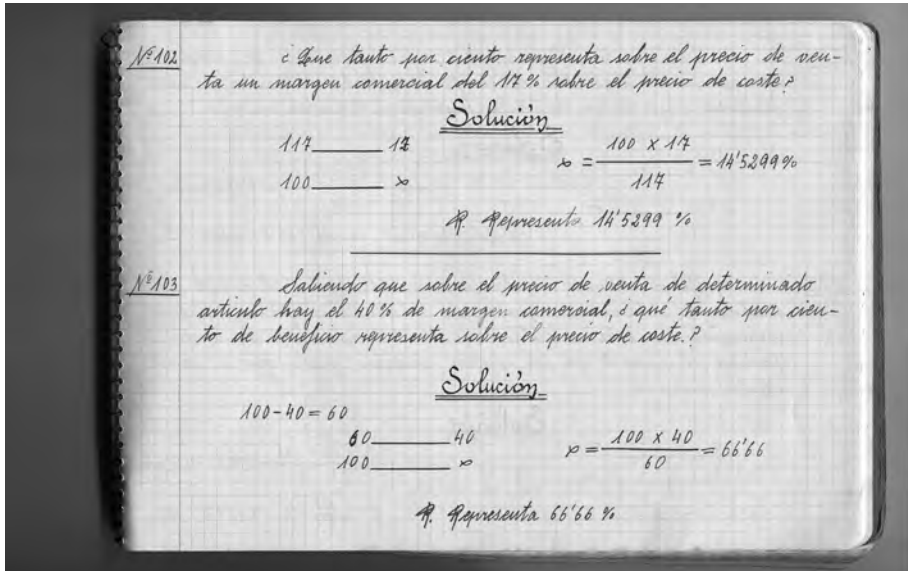 Nº 102
¿ Que tanto por ciento representa sobre el precio de ven-
ta un margen comercial del 17 % sobre el precio de coste ?
Solución
117 _____ 17
100 _____ x
x = 100 x 17 / 117 = 14'5299 %
R. Representa 14'5299 %
Nº 103
Sabiendo que sobre el precio de venta de determinado
articulo hay el 40 % de margen comercial, ¿ qué tanto por cien-
to de beneficio representa sobre el precio de coste. ?
Solución
100 - 40 = 60
60 _____ 40
100 _____ x
x = 100 x 40 / 60 = 66'66
R. Representa 66'66 %